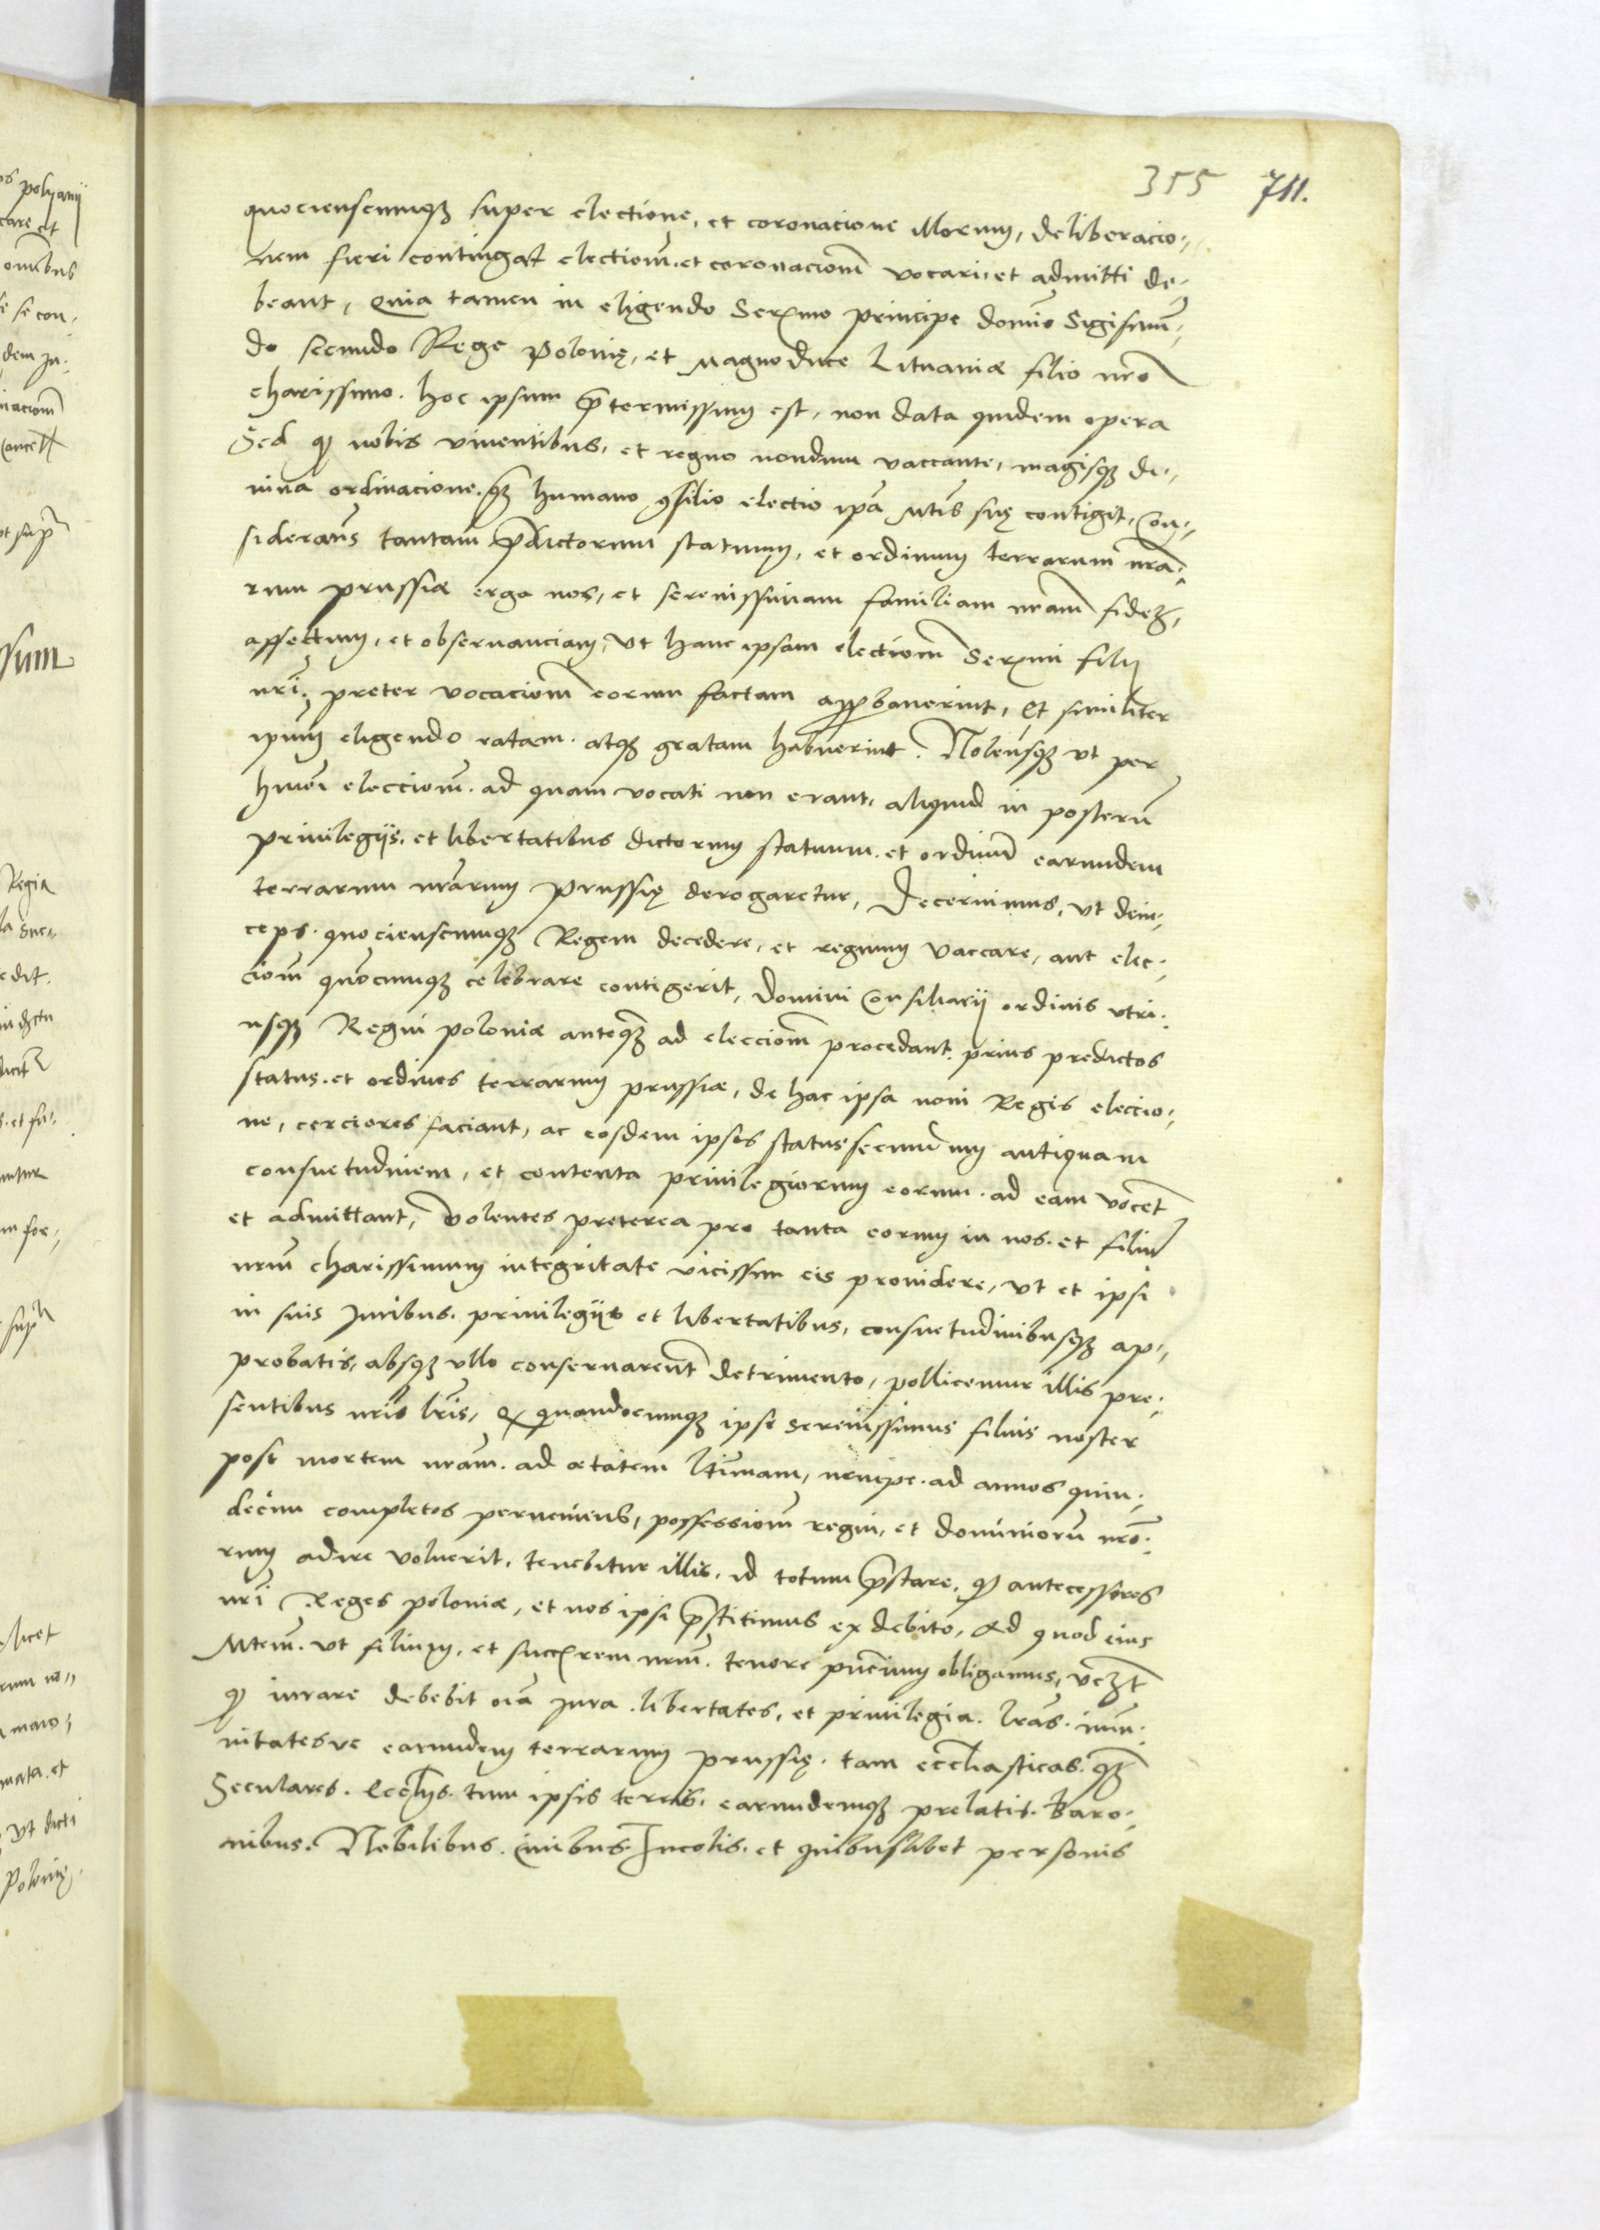 355 711.
quociensumq3 super electione, et coronacione illorum, deliberacio-
nem fieri contingat electiom̄ et coronaciom̄ vocari et admitti de-
beant, Quia tamen in eligendo Serx̄mo principe domīo Sigismūn-
do secundo Rege Polonię, et Magno duce Lituaniæ filio nr̄o
charissimo. hoc ipsum p̄termissum est, non data quidem opera
Sed q nobis viuentibus, et regno nondum vaccante, magisq3 di-
uina ordinacione q3 humano 9silio electio ip̄a Mtis suę contigit, Con-
siderans̄ tantam p̄dictorum statuum, et ordinum terrarum nr̄a-
rum prussiæ erga nos, et serenissimam familiam nr̄am fide3,
affectum, et obseruanciam, vt hanc ipsam electiom̄ Serx̄mi filij
nr̄i, preter vocaciom̄ eorum factam approbauerint, Et similiter
ip̄um eligendo ratam atq3 gratam habuerint. Nolensq3 vt per
hmōi elecciom̄ ad quam vocati non erant, aliquid in posterū
priuilegijs, et libertatibus dictorum statuum et ordinū earundem
terrarum nr̄arum Prussię derogaretur, Decernimus, vt dein-
ceps quociensumq3 Regem decedere, et regnum vaccare, aut elec-
ciom̄ quōcumq3 celebrare contigerit, domini Consiliarij ordinis vtri-
usq3 Regni poloniæ anteq3 ad elecciom̄ procedant, prius predictos
status et ordines terrarum prussiæ, de hac ipsa noui Regis eleccio-
ne, cerciores faciant, ac eosdem ipsos status secundum antiquam
consuetudinem, et contenta priuilegiorum eorum ad eam vocent̄
et admittant, Volentes preterea pro tanta eorum in nos et filiū
nrm̄ charissimum integritate vicissim eis prouidere, vt et ipsi
in suis Juribus, priuilegijs et libertatibus, consuetudinibusq3 ap-
probatis, absq3 vllo conseruarent̄ detrimento, pollicemur illis pre-
sentibus nrīs lrīs, q quandocumq3 ipse serenissimus filius noster
post mortem nr̄am ad ætatem ltīmam, nempe ad annos quin-
decim completos perueniens, possessiom̄ regni, et dominiorū nr̄o-
rum adire voluerit, tenebitur illis, id totum p̄stare, q antecessores
nr̄i Reges poloniæ, et nos ipsi p̄stitimus ex debito, Ad quod eius
Mtem̄ vt filium, et succrem nrm̄ tenore pn̄cium obligamus, vc3t
q iurare debebit oīa Jura, libertates, et priuilegia. lrās imu-
nitatesve earundem terrarum prussię tam eccl̄iasticas q3
Seculares. Eccl̄ijs tum ipsis terris, earundemq3 prelatis. Baro-
nibus. Nobilibus. Ciuibus Incolis, et quibuslibet personis